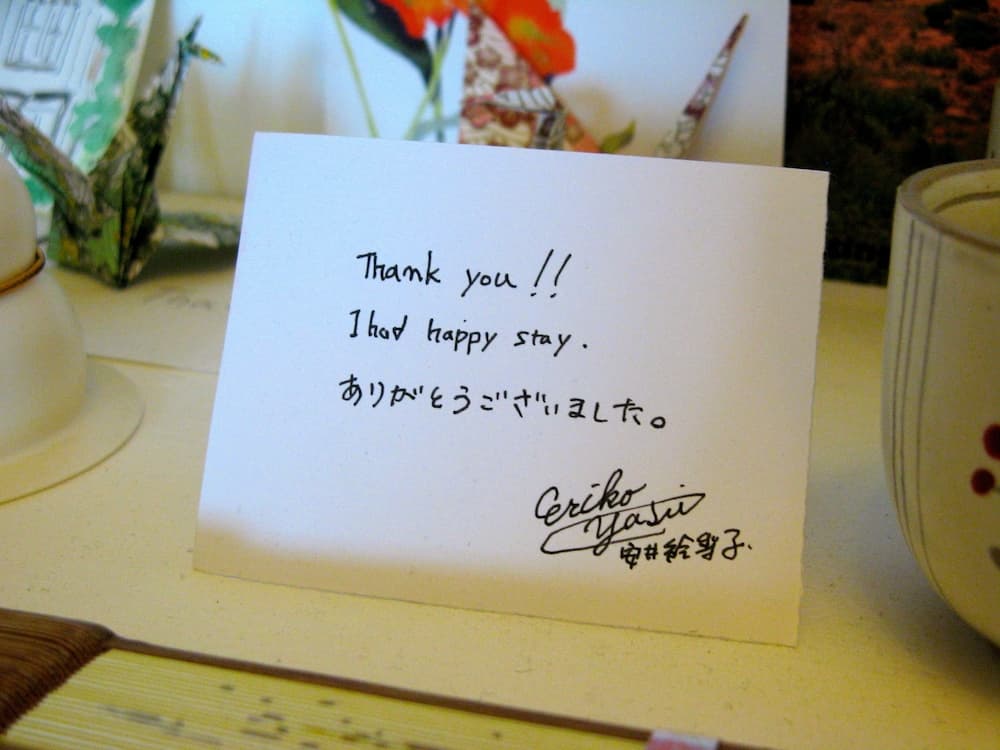 Thank you!!
I had happy stay.
ありがとうございました。
Eriko
Yasui
安井絵理子.